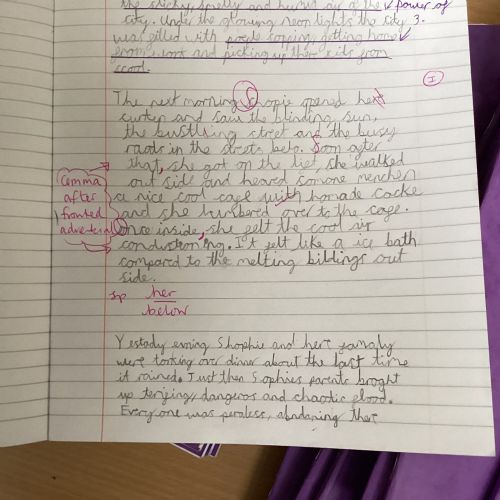 the sticky, smelly and humid air of the power of
city. Under the glowing neon lights the city 3.
was filled with people shopping, getting home
from work and picking up there kids from
scool.
I
The next morning Shopie opened her
curten and saw the blinding sun,
the bustling street and the busy
roads in the streets belo. Soon after
that, she got on the lift, she walked
out side and heared somone menchen
a nice cool cafe with homade cocke
and she humbered over to the cafe.
Once inside, she felt the cool air
conductioning. It felt like a ice bath
compared to the melting bildings out
side.
Comma
after
fronted
adverbial
sp her
below
Yestady evning Shophie and here famaly
were torking over dinner about the last time
it rained. Just then Sophies parents broght
up terifing, dangeros and chaotic flood.
Everyone was peraless, abndaning there